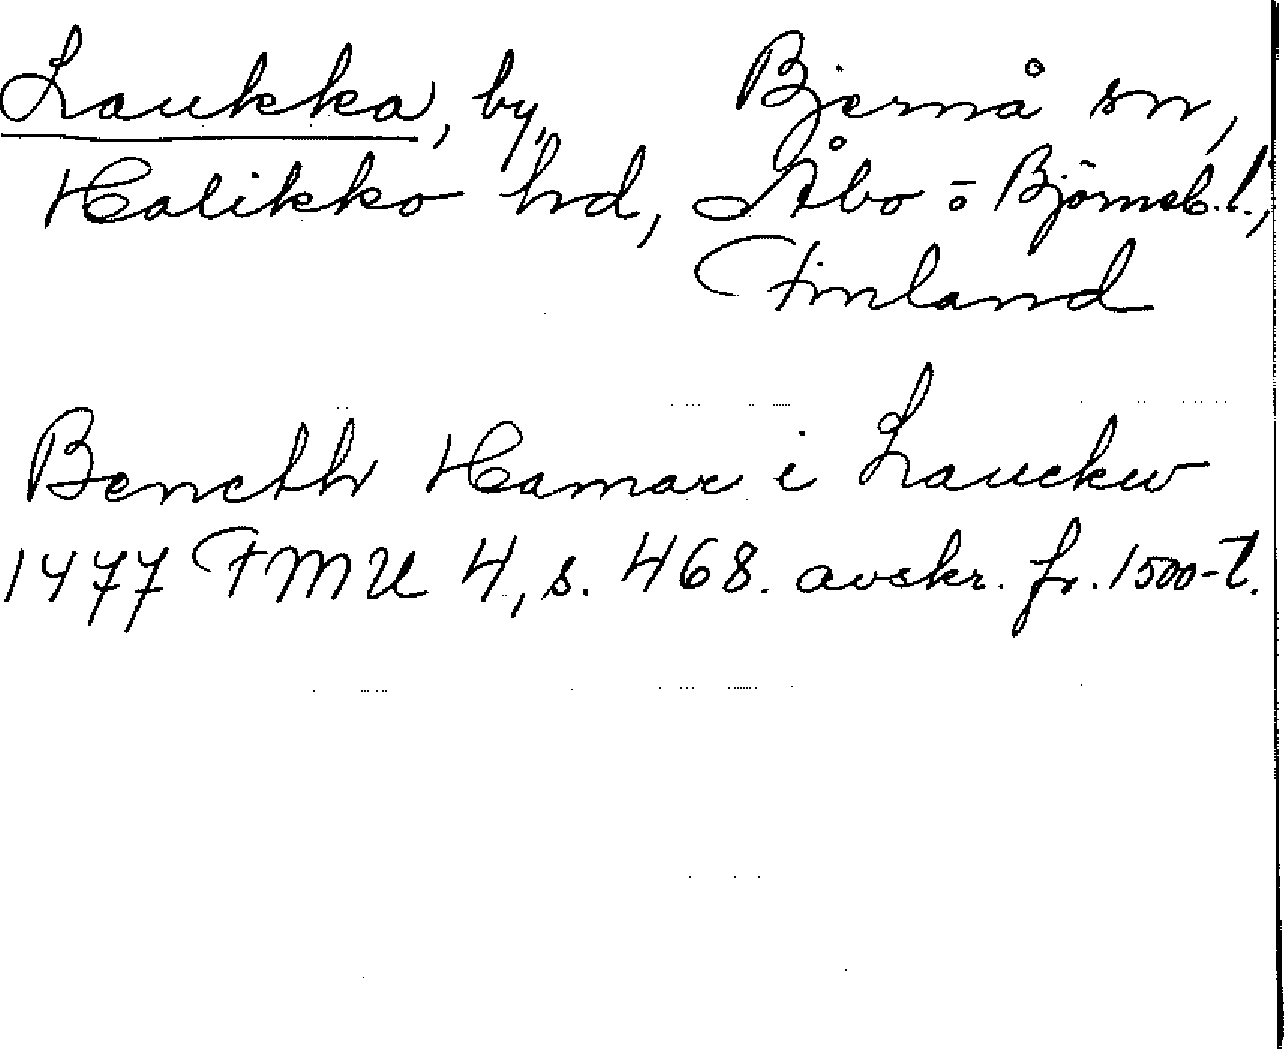 Laukka, by, Bjernå sn,
Halikko hd, Åbo o Björneb. l.,
Finland
Bencth Hamar i Lauckw
1477 FMU 4, s. 468. avskr. fr. 1500-t.